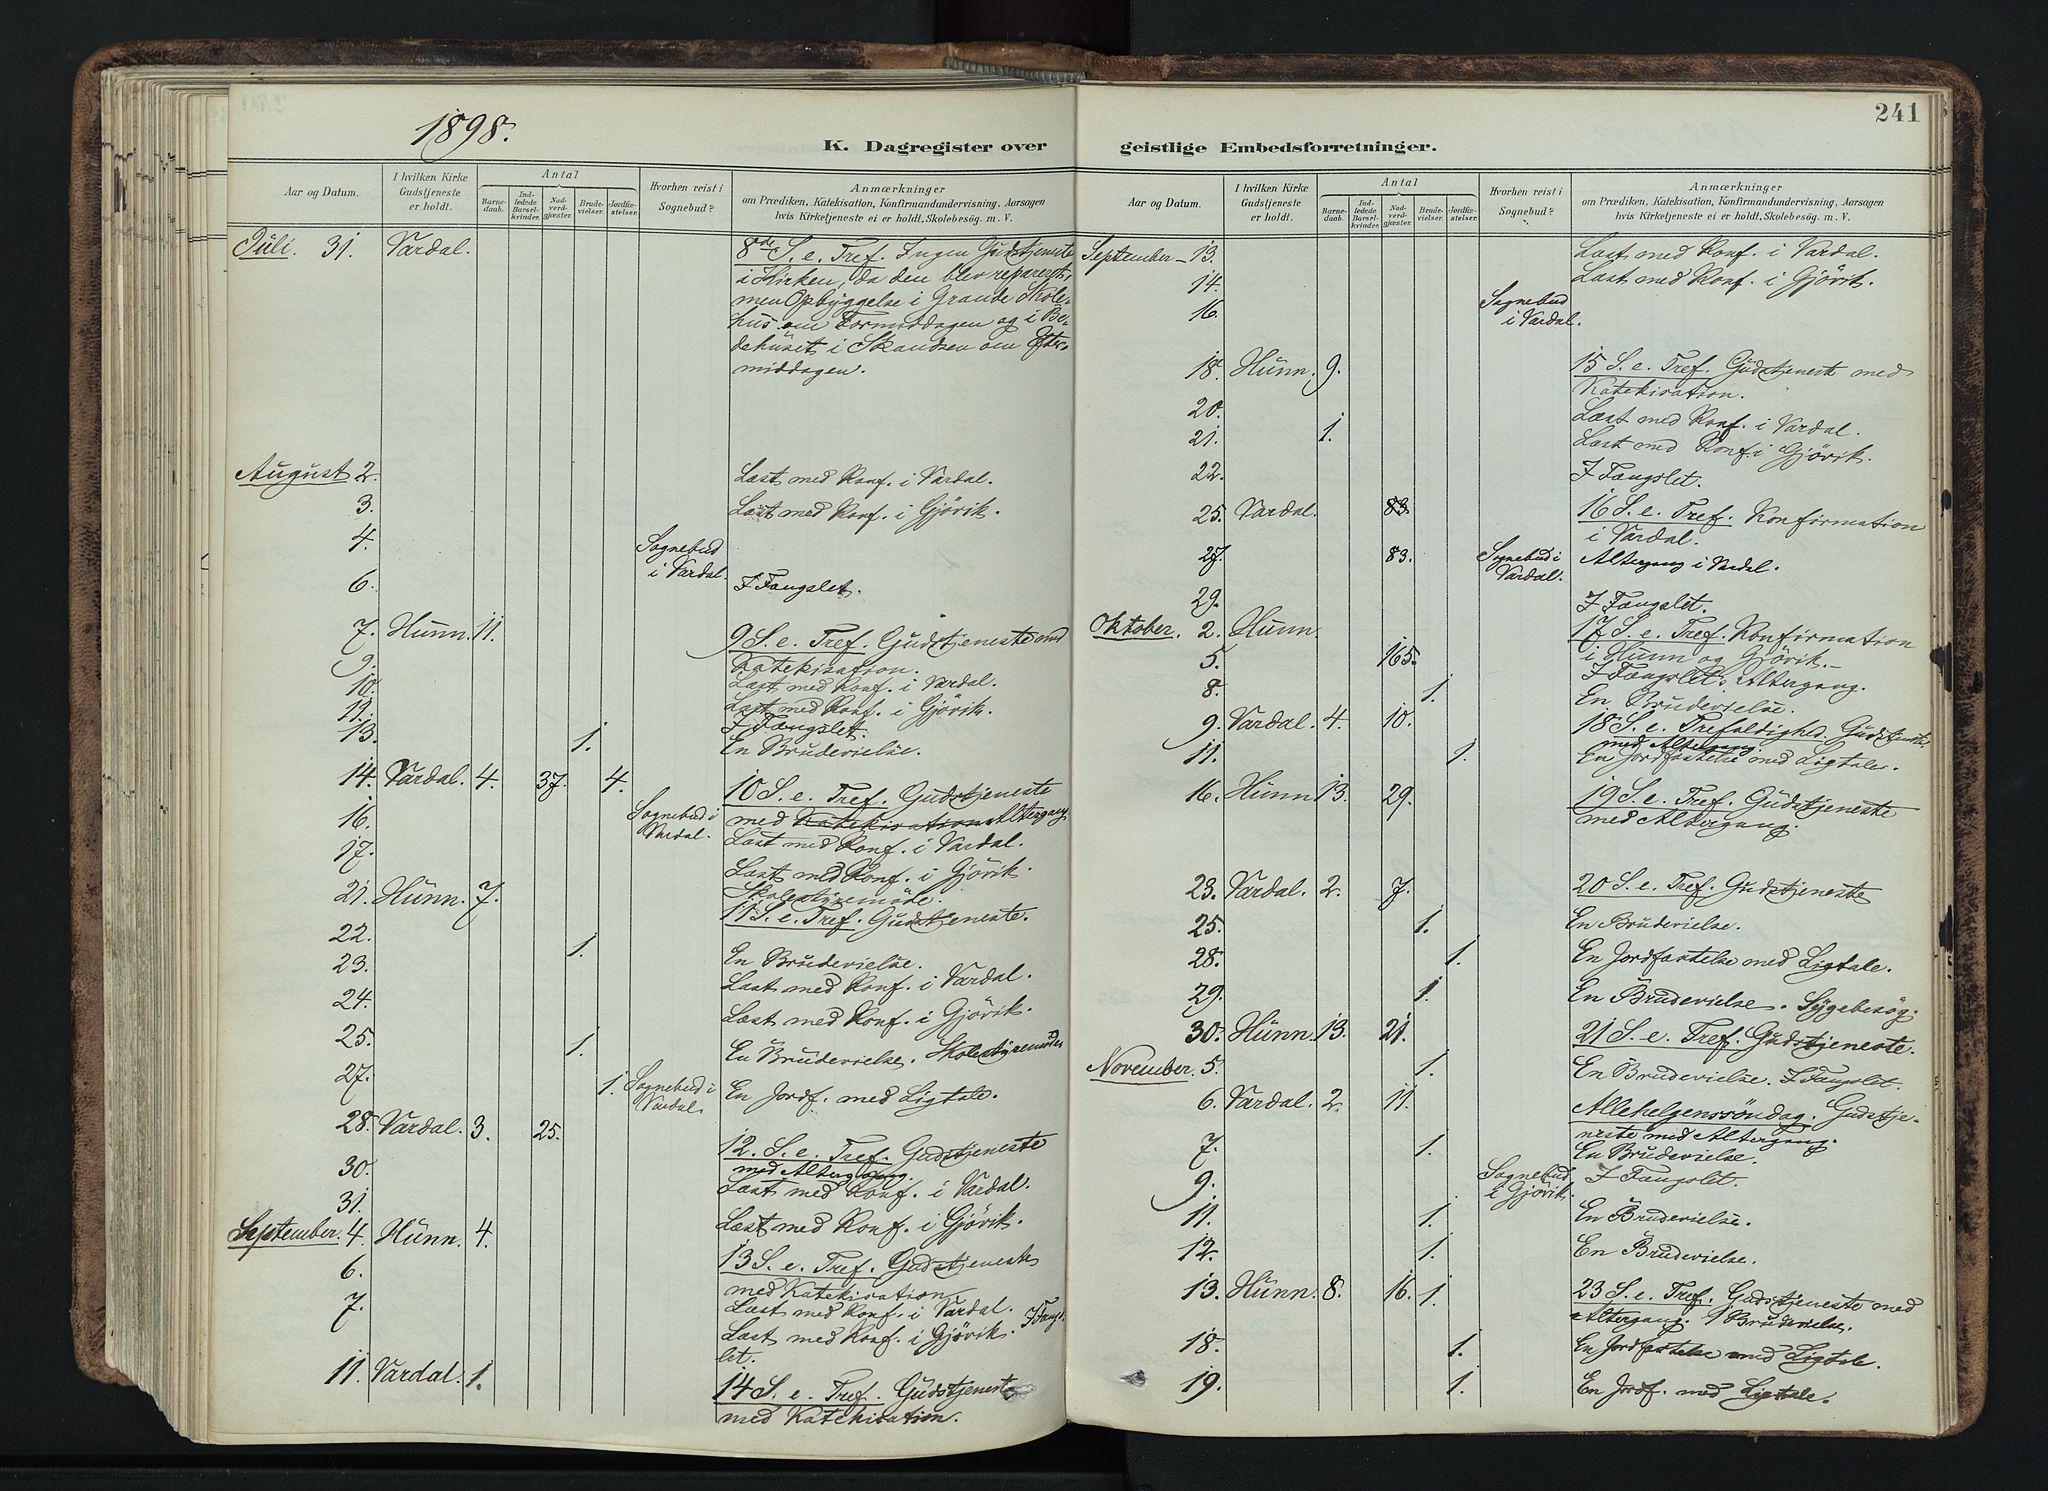 1898.
K. Dagregister over
Aar og Datum.
I hvilken Kirke Gudstjeneste er holdt.
Antal
Barnedaab.
Indledede Barselkvinder.
Nadverdgjæster.
Brudevielser.
Jordfæstelser.
Hvorhen reist i Sognebud?
Anmærkninger
om Prædiken, Katekisation, Konfirmandundervisning, Aarsagen
hvis Kirketjeneste ei er holdt, Skolebesøg. m. V.
Juli. 31. Vardal. 8de S. e. Tref. Ingen Gudstjeneste
i Kirken, da den blev reparert,
men Opbyggelse i Grande Skole-
hus om Formiddagen og i Be-
dehuset i Skandsen om Efter-
middagen.
August 2. Læst med Konf. i Vardal.
3. Læst med Konf. i Gjövik.
4. Sognebud i Vardal.
6. I Fængslet.
7. Hunn. 11. 9 S. e. Tref. Gudstjeneste med
Katekisation.
9. Læst med Konf. i Vardal.
10. Læst med Konf. i Gjövik.
11. I Fængslet.
13. 1. En Brudevielse.
14. Vardal. 4. 37. 4. 10 S. e. Tref. Gudstjeneste
med Katekisation Altergang
16. Sognebud i Vardal. Læst med Konf. i Vardal.
17. Læst med Konf. i Gjövik.
Skolestyremöde.
21. Hunn. 7. 11 S. e. Tref. Gudstjeneste.
22. 1. En Brudevielse.
23. Læst med Konf. i Vardal.
24. Læst med Konf. i Gjövik.
25. 1. En Brudevielse. Skolestyremöde
27. 1. Sognebud i Vardal. En Jordf. med Ligtale.
28. Vardal. 3. 25. 12. S. e. Tref. Gudstjeneste
med Altergang.
30. Læst med Konf. i Vardal.
31. Læst med Konf. i Gjövik.
September. 4. Hunn. 4. 13 S. e. Tref. Gudstjeneste
med Katekisation.
6. Læst med Konf. i Vardal.
7. Læst med Konf. i Gjövik. I Fængs-
let.
11. Vardal. 1. 14 S. e. Tref. Gudstjeneste
med Katekisation.
241
geistlige Embedsforretninger.
Aar og Datum.
I hvilken Kirke Gudstjeneste er holdt.
Antal
Barnedaab.
Indledede Barselkvinder.
Nadverdgjæster.
Brudevielser.
Jordfæstelser.
Hvorhen reist i Sognebud?
Anmærkninger
om Prædiken, Katekisation, Konfirmandundervisning, Aarsagen
hvis Kirketjeneste ei er holdt, Skolebesøg. m. V.
September 13. Læst med Konf. i Vardal.
14. Læst med Konf. i Gjövik.
16. Sognebud i Vardal.
18. Hunn. 9. 15 S. e. Tref. Gudstjeneste med
Katekisation.
20. Læst med Konf. i Vardal.
21. 1. Læst med Konf. i Gjövik.
22. I Fængslet.
25. Vardal. 83. 16 S. e. Tref. Konfirmation
i Vardal.
27. 83. Sognebud i Vardal. Altergang i Vardal.
29. I Fængslet.
Oktober. 2. Hunn. 17 S. e. Tref. Konfirmation
i Hunn og Gjövik.
5. 165. I Fængslet. Altergang.
8. 1. En Brudevielse.
9. Vardal. 4. 10. 18 S. e. Trefoldighed. Gudstjeneste
med Altergang.
11. 1. En Jordfæstelse med Ligtale.
16. Hunn 13. 29. 19 S. e. Tref. Gudstjeneste
med Altergang.
23. Vardal. 2. 7. 20 S. e. Tref. Gudstjeneste
25. 1. En Brudevielse.
28. 1. En Jordfæstelse med Ligtale.
29. 1. En Brudevielse. Sygebesög.
30. Hunn. 13. 21. 21 S. e. Tref. Gudstjeneste.
November. 5. 1. En Brudevielse. I Fængslet.
6. Vardal. 2. 11. Allehelgenssöndag. Gudstje-
neste med Altergang.
7. 1. En Brudevielse.
9. Sognebud i Gjövik. I Fængslet.
11. 1. En Brudevielse.
12. 1. En Brudevielse.
13. Hunn. 8. 16. 1. 23 S. e. Tref. Gudstjeneste med
Altergang. 1 Brudevielse.
18. 1. En Jordfæstelse med Ligtale.
19. 1. En Jordf. med Ligtale.